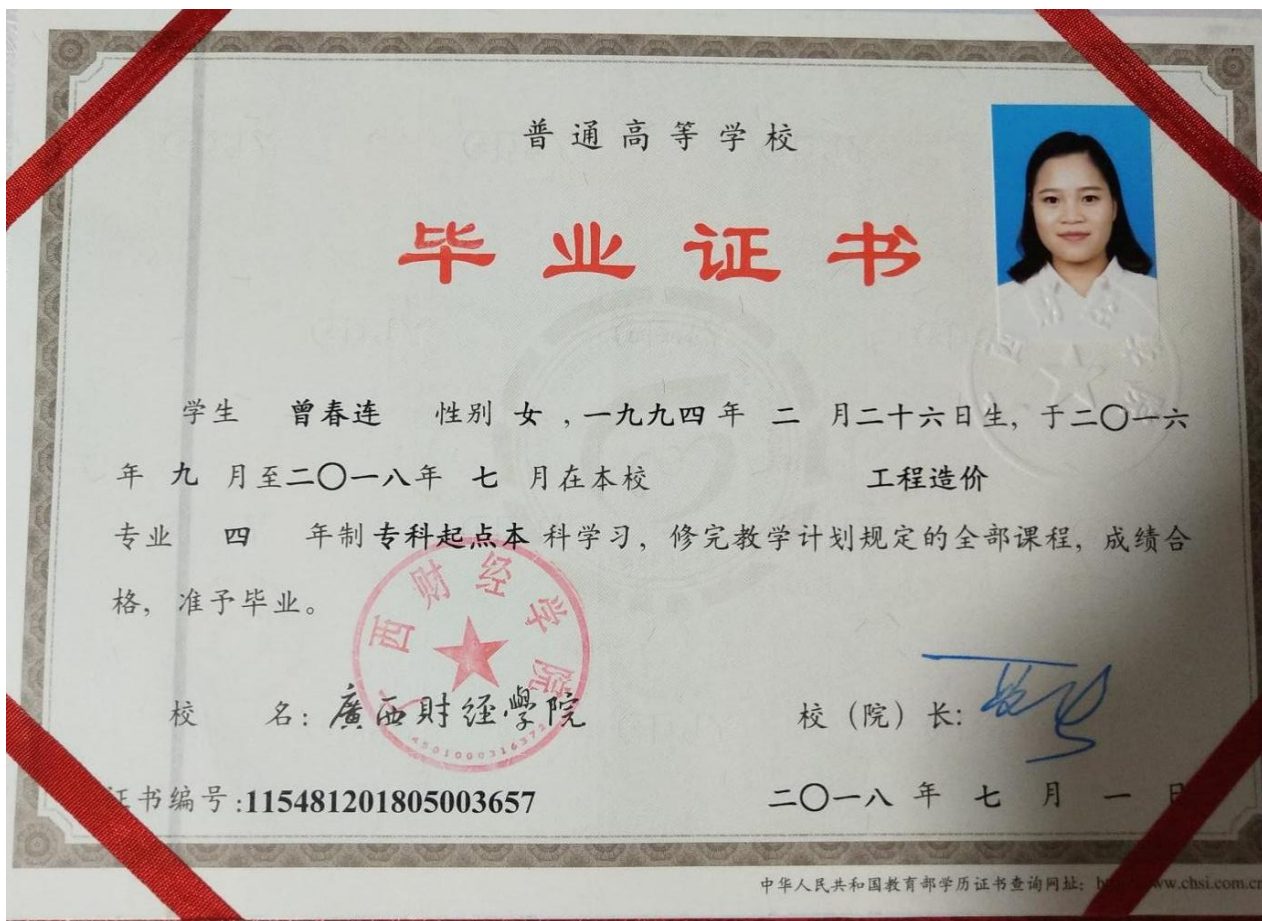 普通高等学校
毕业证书
学生 曾春连 性别 女 ,一九九四 年 二 月二十六日生, 于二〇一六
年 九 月至二〇一八年 七 月在本校 工程造价
专业 四 年制 专科起点本 科学习, 修完教学计划规定的全部课程, 成绩合
格, 准予毕业。
广西财经学院
校 名: 廣西財经學院
校 (院) 长:
证书编号:115481201805003657
二〇一八 年 七 月 一 日
中华人民共和国教育部学历证书查询网址: www.chsi.com.cn